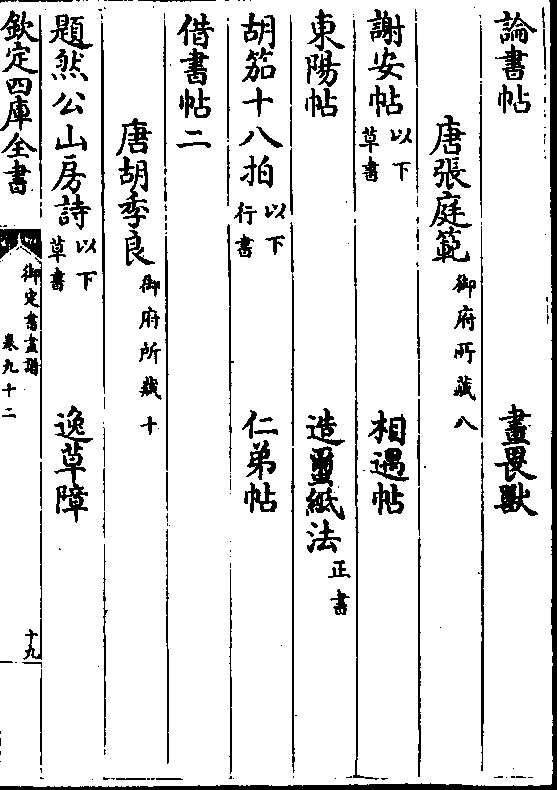 論書帖　畫畏獸
唐張庭範御府所藏八
謝安帖以下草書　相遇帖
東陽帖　造璽紙法正書
胡笳十八拍以下行書　仁弟帖
借書帖二
唐胡季良御府所藏十
題然公山房詩以下草書　逸草障
欽定四庫全書　御定書畫譜　卷九十二　十九